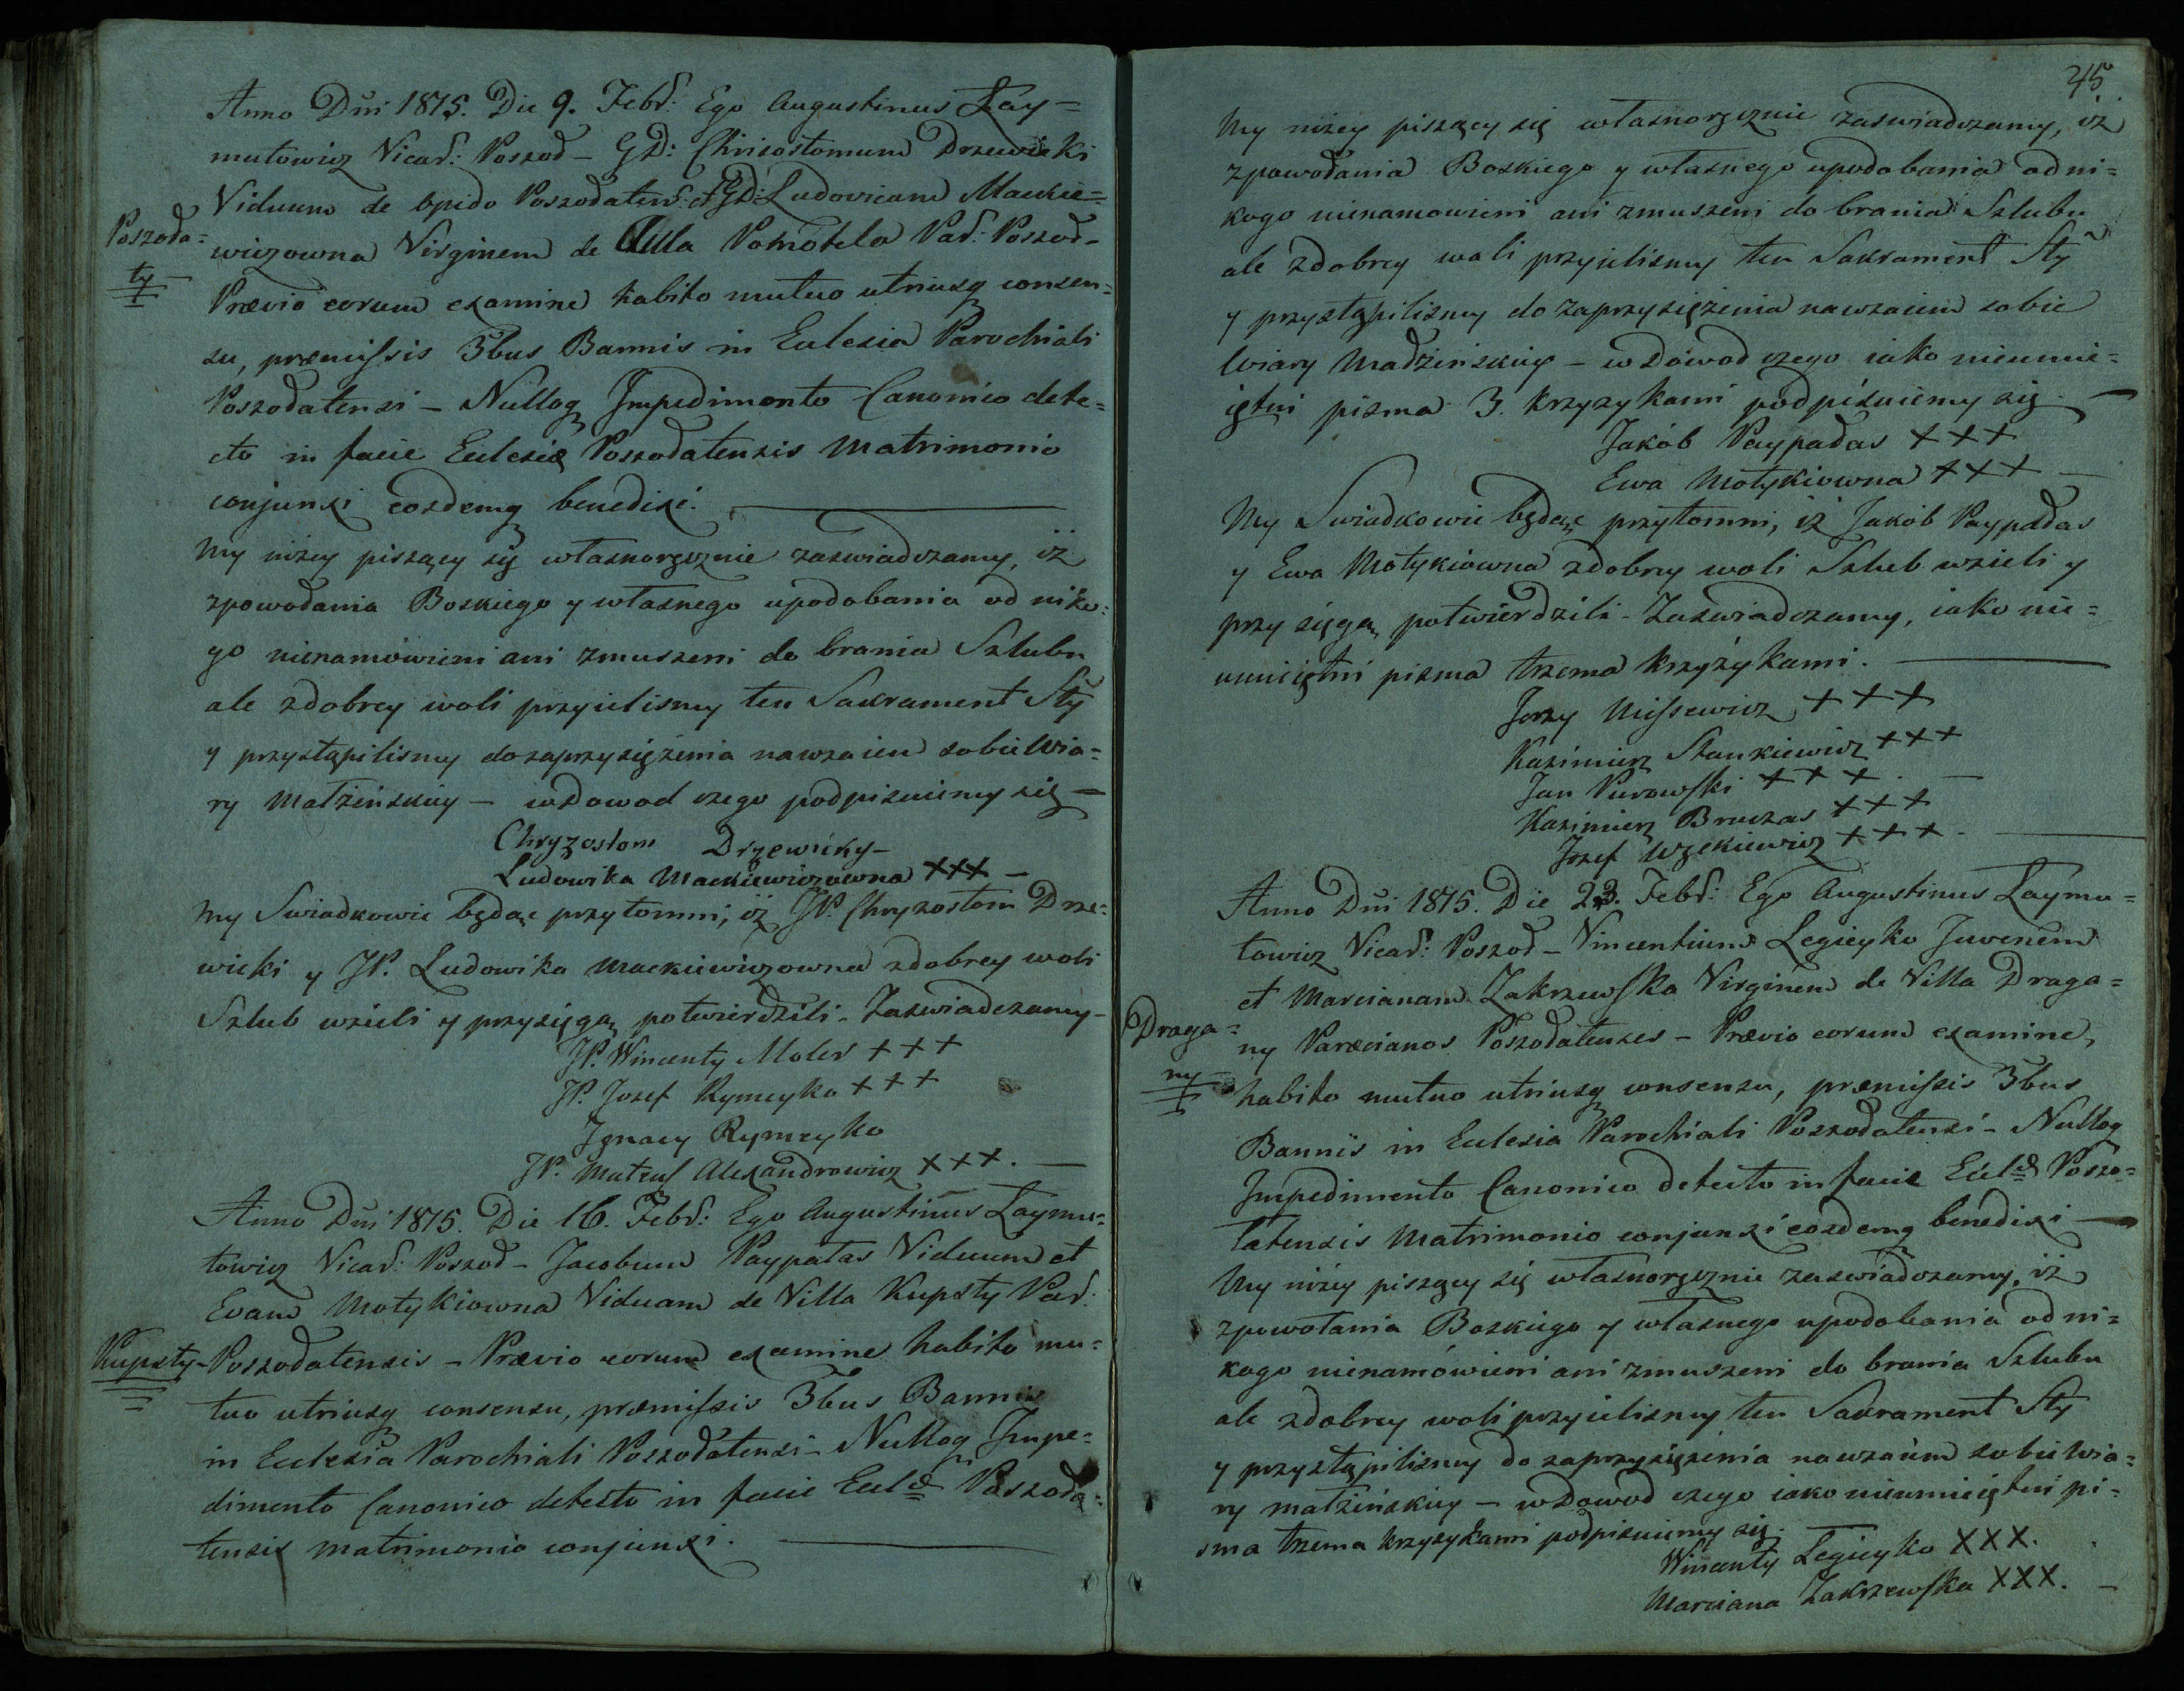 Anno Dni 1815. Die 9. Febr: Ego Augustinus Łay=
mutowicz Vicar: Poszod– GD: Chrisostomum Drzewicki
Viduum de opido Poszodaten: et GD: Ludovicam Mackie=
Poszoda=
ty
wiczowna Virginem de Villa Pomotela Par: Poszod–
Prævio eorum examine habito mutuo utriusq consen=
su, præmissis 3bus Bannis in Eclesia Parochiali
Poszodatensi – Nulloq Impedimento Canonico dete=
cto in facie Eclesiæ Poszodatensis Matrimonio
conjunxi eosdemq benedixi.
My niżey piszący się własnoręcznie zaswiadczamy, iż
zpowodania Boskiego y własnego upodobania od niko=
go nienamowieni ani zmuszeni do brania Szlubu
ale zdobrey woli przyielismy ten Sakrament Sty
y przystąpilismy do zaprzysiężenia nawzaiem sobie Wia=
ry Małżeńskiey – w Dowod czego podpisuiemy się –
Chryzostom Drzewicky –
Ludowika Mackiewiczowna XXX –
My Swiadkowie będąc przytomni, iż JP. Chryzostom Drze=
wicki y JP. Ludowika Mackiewiczowna zdobrey woli
Szlub wzieli y przysięgą potwierdzili – Zaswiadczamy –
JP. Wincenty Moler +++
JP. Jozef Rymeyko +++
Jgnacy Rymeyko
JP. Mateusz Alexandrowicz XXX. –
Anno Dni 1815. Die 16. Febr: Ego Augustinus Łaymu=
towicz Vicar: Poszod – Jacobum Paypałas Viduum et
Evam Motykiowna Viduam de Villa Kupsty Par:
Kupsty –
Poszodatensis – Prævio eorum examine habito mu=
tuo utriusq consensu, præmissis 3bus Bannis
in Eclesia Parochiali Poszodatensi – Nulloq Impe=
dimento Canonico detecto in facie Eclæ Poszoda=
tensis matrimonio conjunxi.
45
My niżey piszący się własnoręcznie zaswiadczamy, iż
zpowodania Boskiego y własnego upodobania od ni=
kogo nienamowieni ani zmuszeni do brania Szlubu
ale zdobrey woli przyielismy ten Sakrament Sty
y przystąpilismy do zaprzysiężenia nawzaiem sobie
Wiary Madżeńskiey – w Dowod czego iako nieumie=
iętni pisma 3. krzyzykami podpisuiemy się. –
Jakób Paypadas +++
Ewa Motykiowna +++ –
My Swiadkowie będąc przytomni, iż Jakób Paypadas
y Ewa Motykiowna zdobrey woli Szlub wzieli y
przysięgą potwierdzili – Zaswiadczamy, iako nie=
umieiętni pisma trzema krzyżykami.
Jerzy Missewicz +++
Kazimierz Stankiewicz +++
Jan Purowski +++. –
Kazimierz Bruczas +++
Jozef Wzękiewicz +++.
Anno Dni 1815. Die 23. Febr: Ego Augustinus Łaymu=
towicz Vicar: Poszod – Vincentium Legieyko Juvenem
et Marcianam Zakrzewska Virginem de Villa Draga=
Draga=
ny
ny Paræcianos Poszodatenses – Prævio eorum examine,
habito mutuo utriusq consensu, præmissis 3bus
Bannis in Eclesia Parochiali Poszodatensi – Nulloq
Impedimento Canonico detecto in facie Eclæ Poszo=
datensis Matrimonio conjunxi eosdemq benedixi –
My niżey piszący się własnoręcznie zaswiadczamy, iż
zpowołania Boskiego y własnego upodobania od ni=
kogo nienamówieni ani zmuszeni do brania Szlubu
ale zdobrey woli przyielismy ten Sakrament Sty
y przystąpilismy do zaprzysiężenia nawzaiem sobie Wia=
ry małżeńskiey – w Dowod czego iako nieumieiętni pi=
sma trzema krzyzykami podpisuiemy się.
Wincenty Legieyko XXX.
Marciana Zakrzewska XXX. –